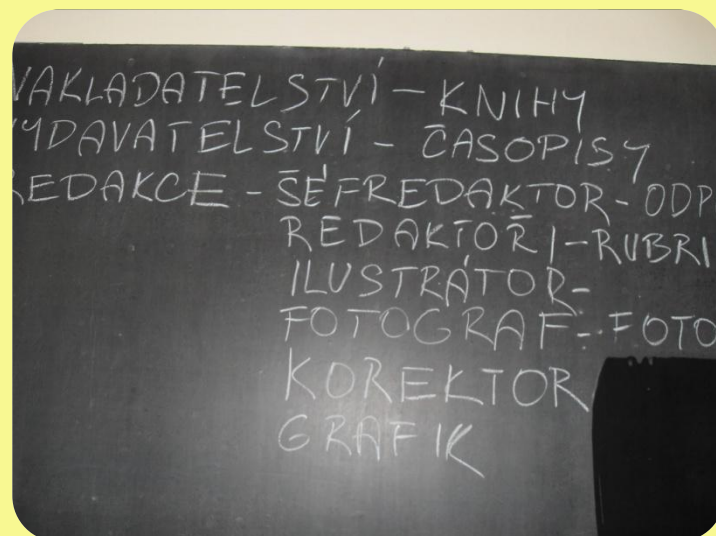 NAKLADATELSTVÍ - KNIHY
VYDAVATELSTVÍ - ČASOPISY
REDAKCE - ŠÉFREDAKTOR - ODP
REDAKTOŘI - RUBRI
ILUSTRÁTOR -
FOTOGRAF - FOTO
KOREKTOR
GRAFIK